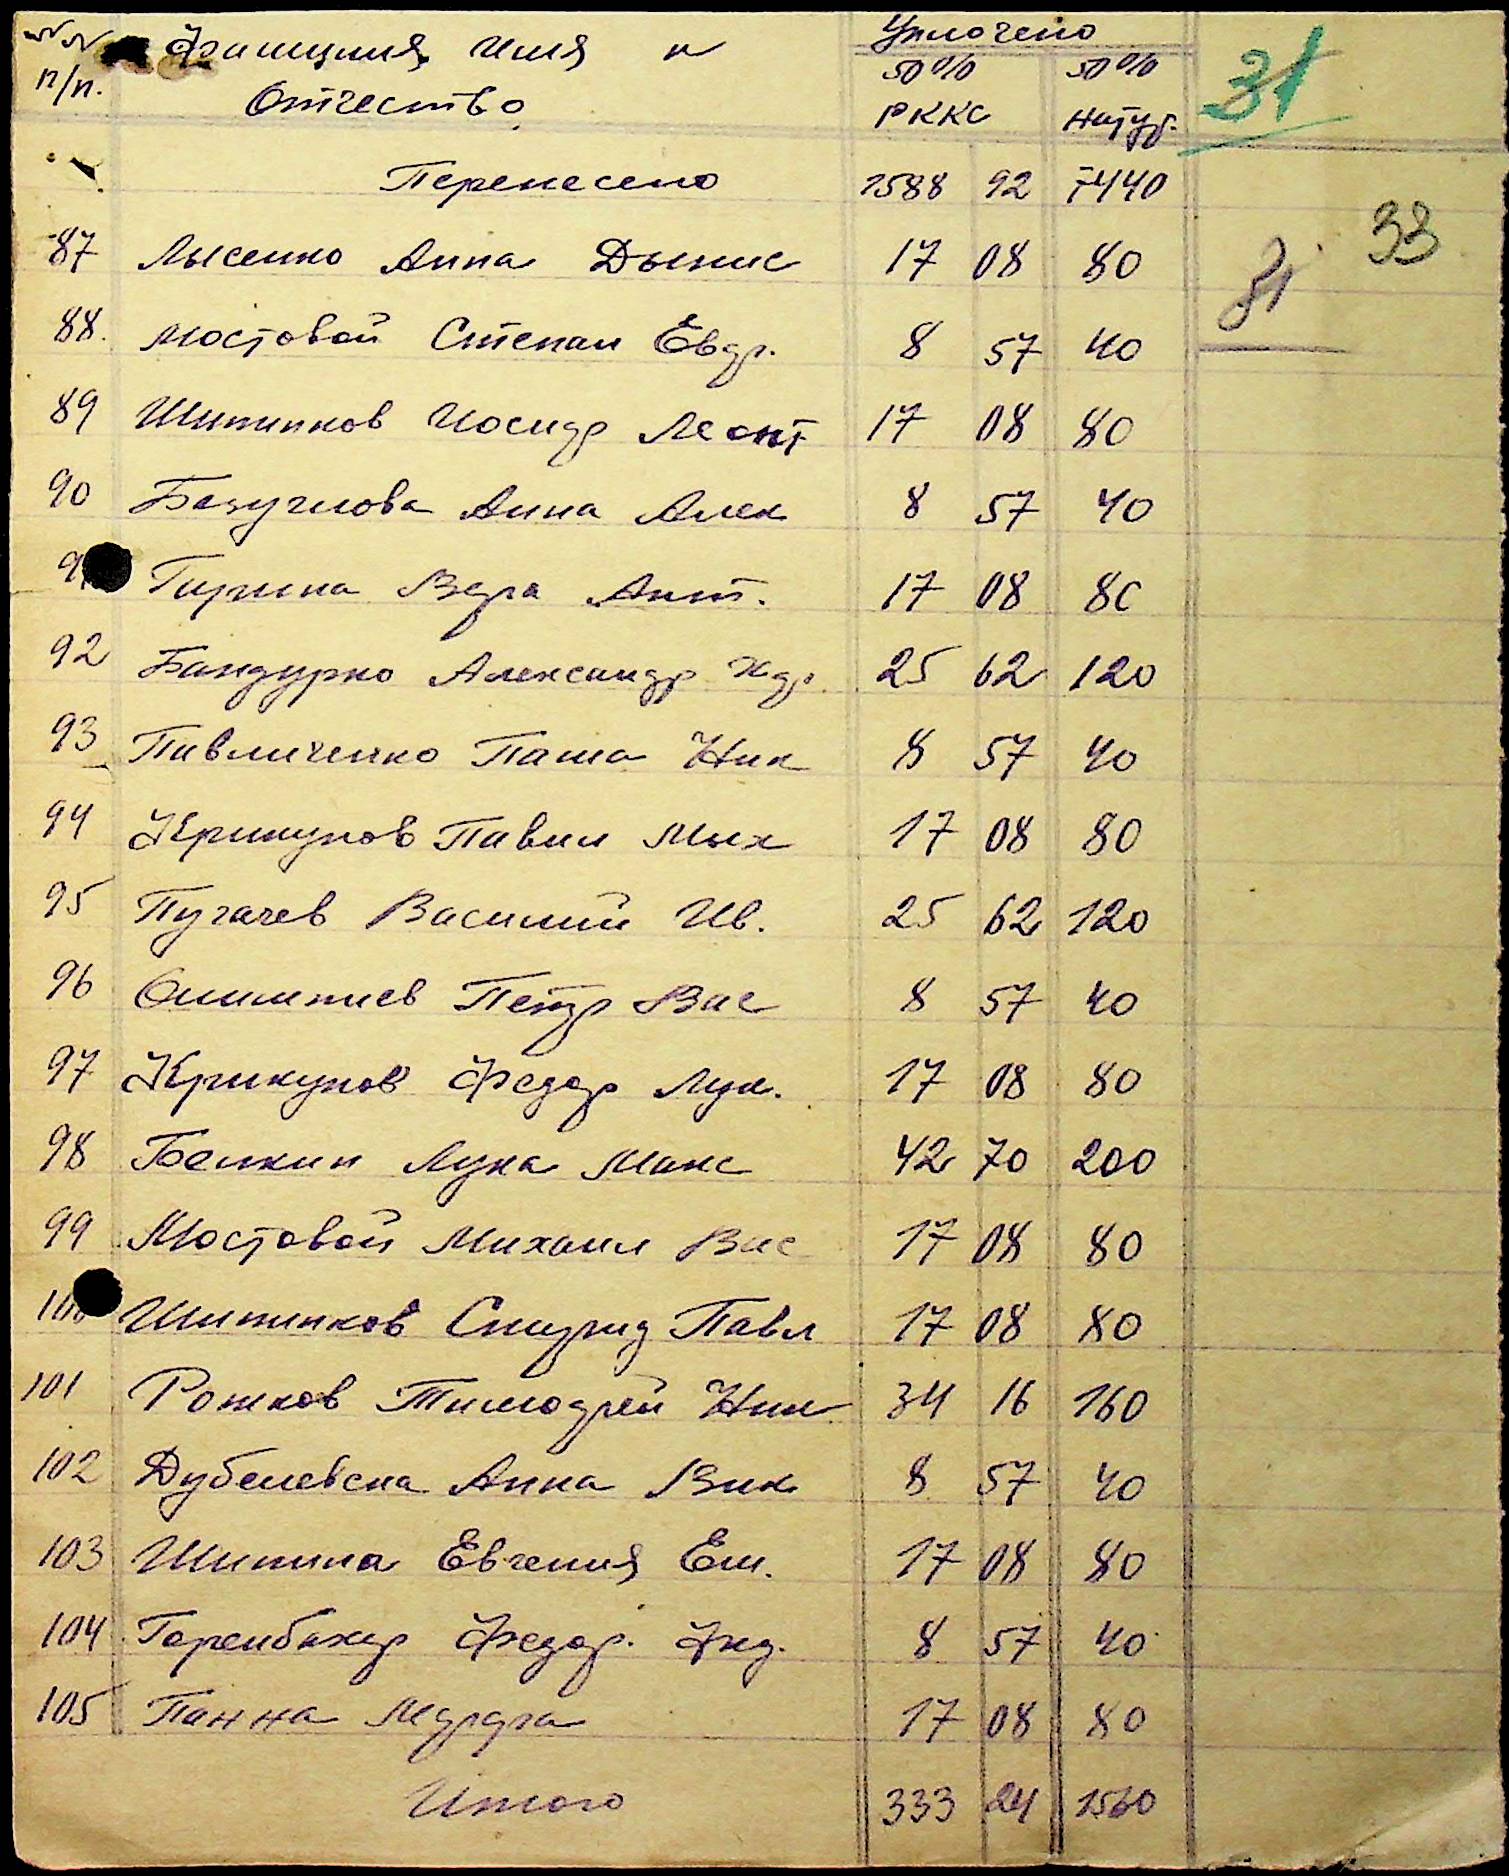 №№ Фамилия, имя и Уплочено
п/п. Отчество 50% 50%
РККС натур.
31
Перенесено 1588 92 7440
33
31
87 Лысенко Анна Дынис 17 08 80
88. Мостовой Степан Евдр. 8 57 40
89 Шипинков Иосиф Леонт 17 08 80
90 Безуглова Анна Алек 8 57 40
9 Гирина Вера Ант. 17 08 80
92 Бандурко Александр 25 62 120
93 Павличенко Паша Ник 8 57 40
94 Крикунов Павел Мих 17 08 80
95 Пугачев Василий Ив. 25 62 120
96 Олимпиев Петр Вас 8 57 40
97 Крикунов Федор Лук. 17 08 80
98 Белкин Лука Макс 42 70 200
99 Мостовой Михаил Вас 17 08 80
100 Шипинков Спирид Павл 17 08 80
101 Рожков Тимофей Ник 34 16 160
102 Дубелевска Анна Вик 8 57 40
103 Шипина Евгения Ем. 17 08 80
104 Федор. 8 57 40
105 Панна 17 08 80
Итого 333 24 1560